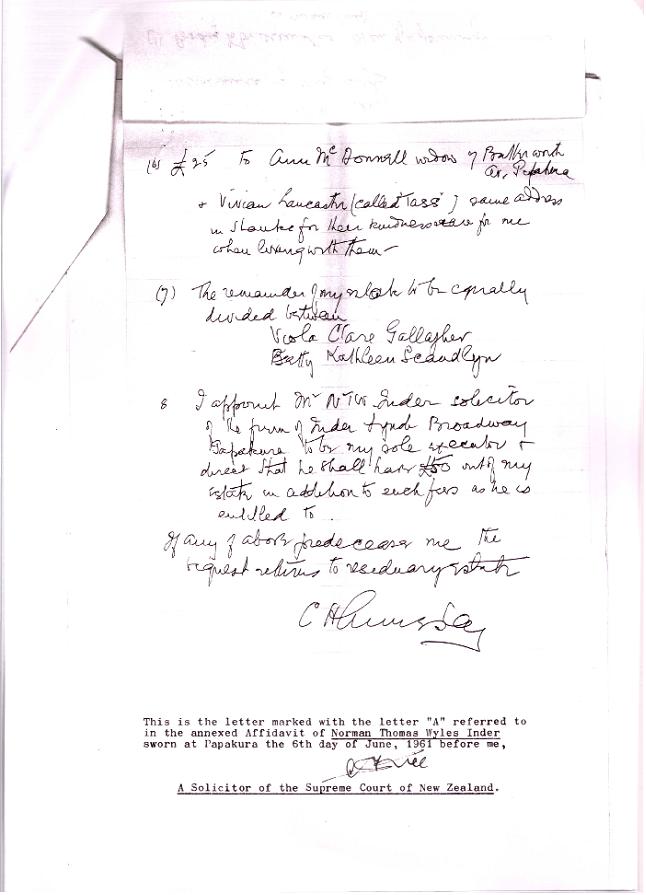 (6) £25 To Ann McDonnell widow of Butterworth
Av, Papakura
+ Vivian Lancaster (called Tass) same address
in thanks for their kindness for me
when living with them —
(7) The remainder of my estate to be equally
divided between
Viola Clare Gallagher
Betty Kathleen Scandlyn
8 I appoint Mr NTW Inder solicitor
of the firm of Inder Lynch Broadway
Papakura to be my sole executor +
direct that he shall have £50 out of my
estate in addition to such fees as he is
entitled to.
If any of above predeceases me the
bequest returns to residuary estate
This is the letter marked with the letter "A" referred to
in the annexed Affidavit of Norman Thomas Wyles Inder
sworn at Papakura the 6th day of June, 1961 before me,
A Solicitor of the Supreme Court of New Zealand.